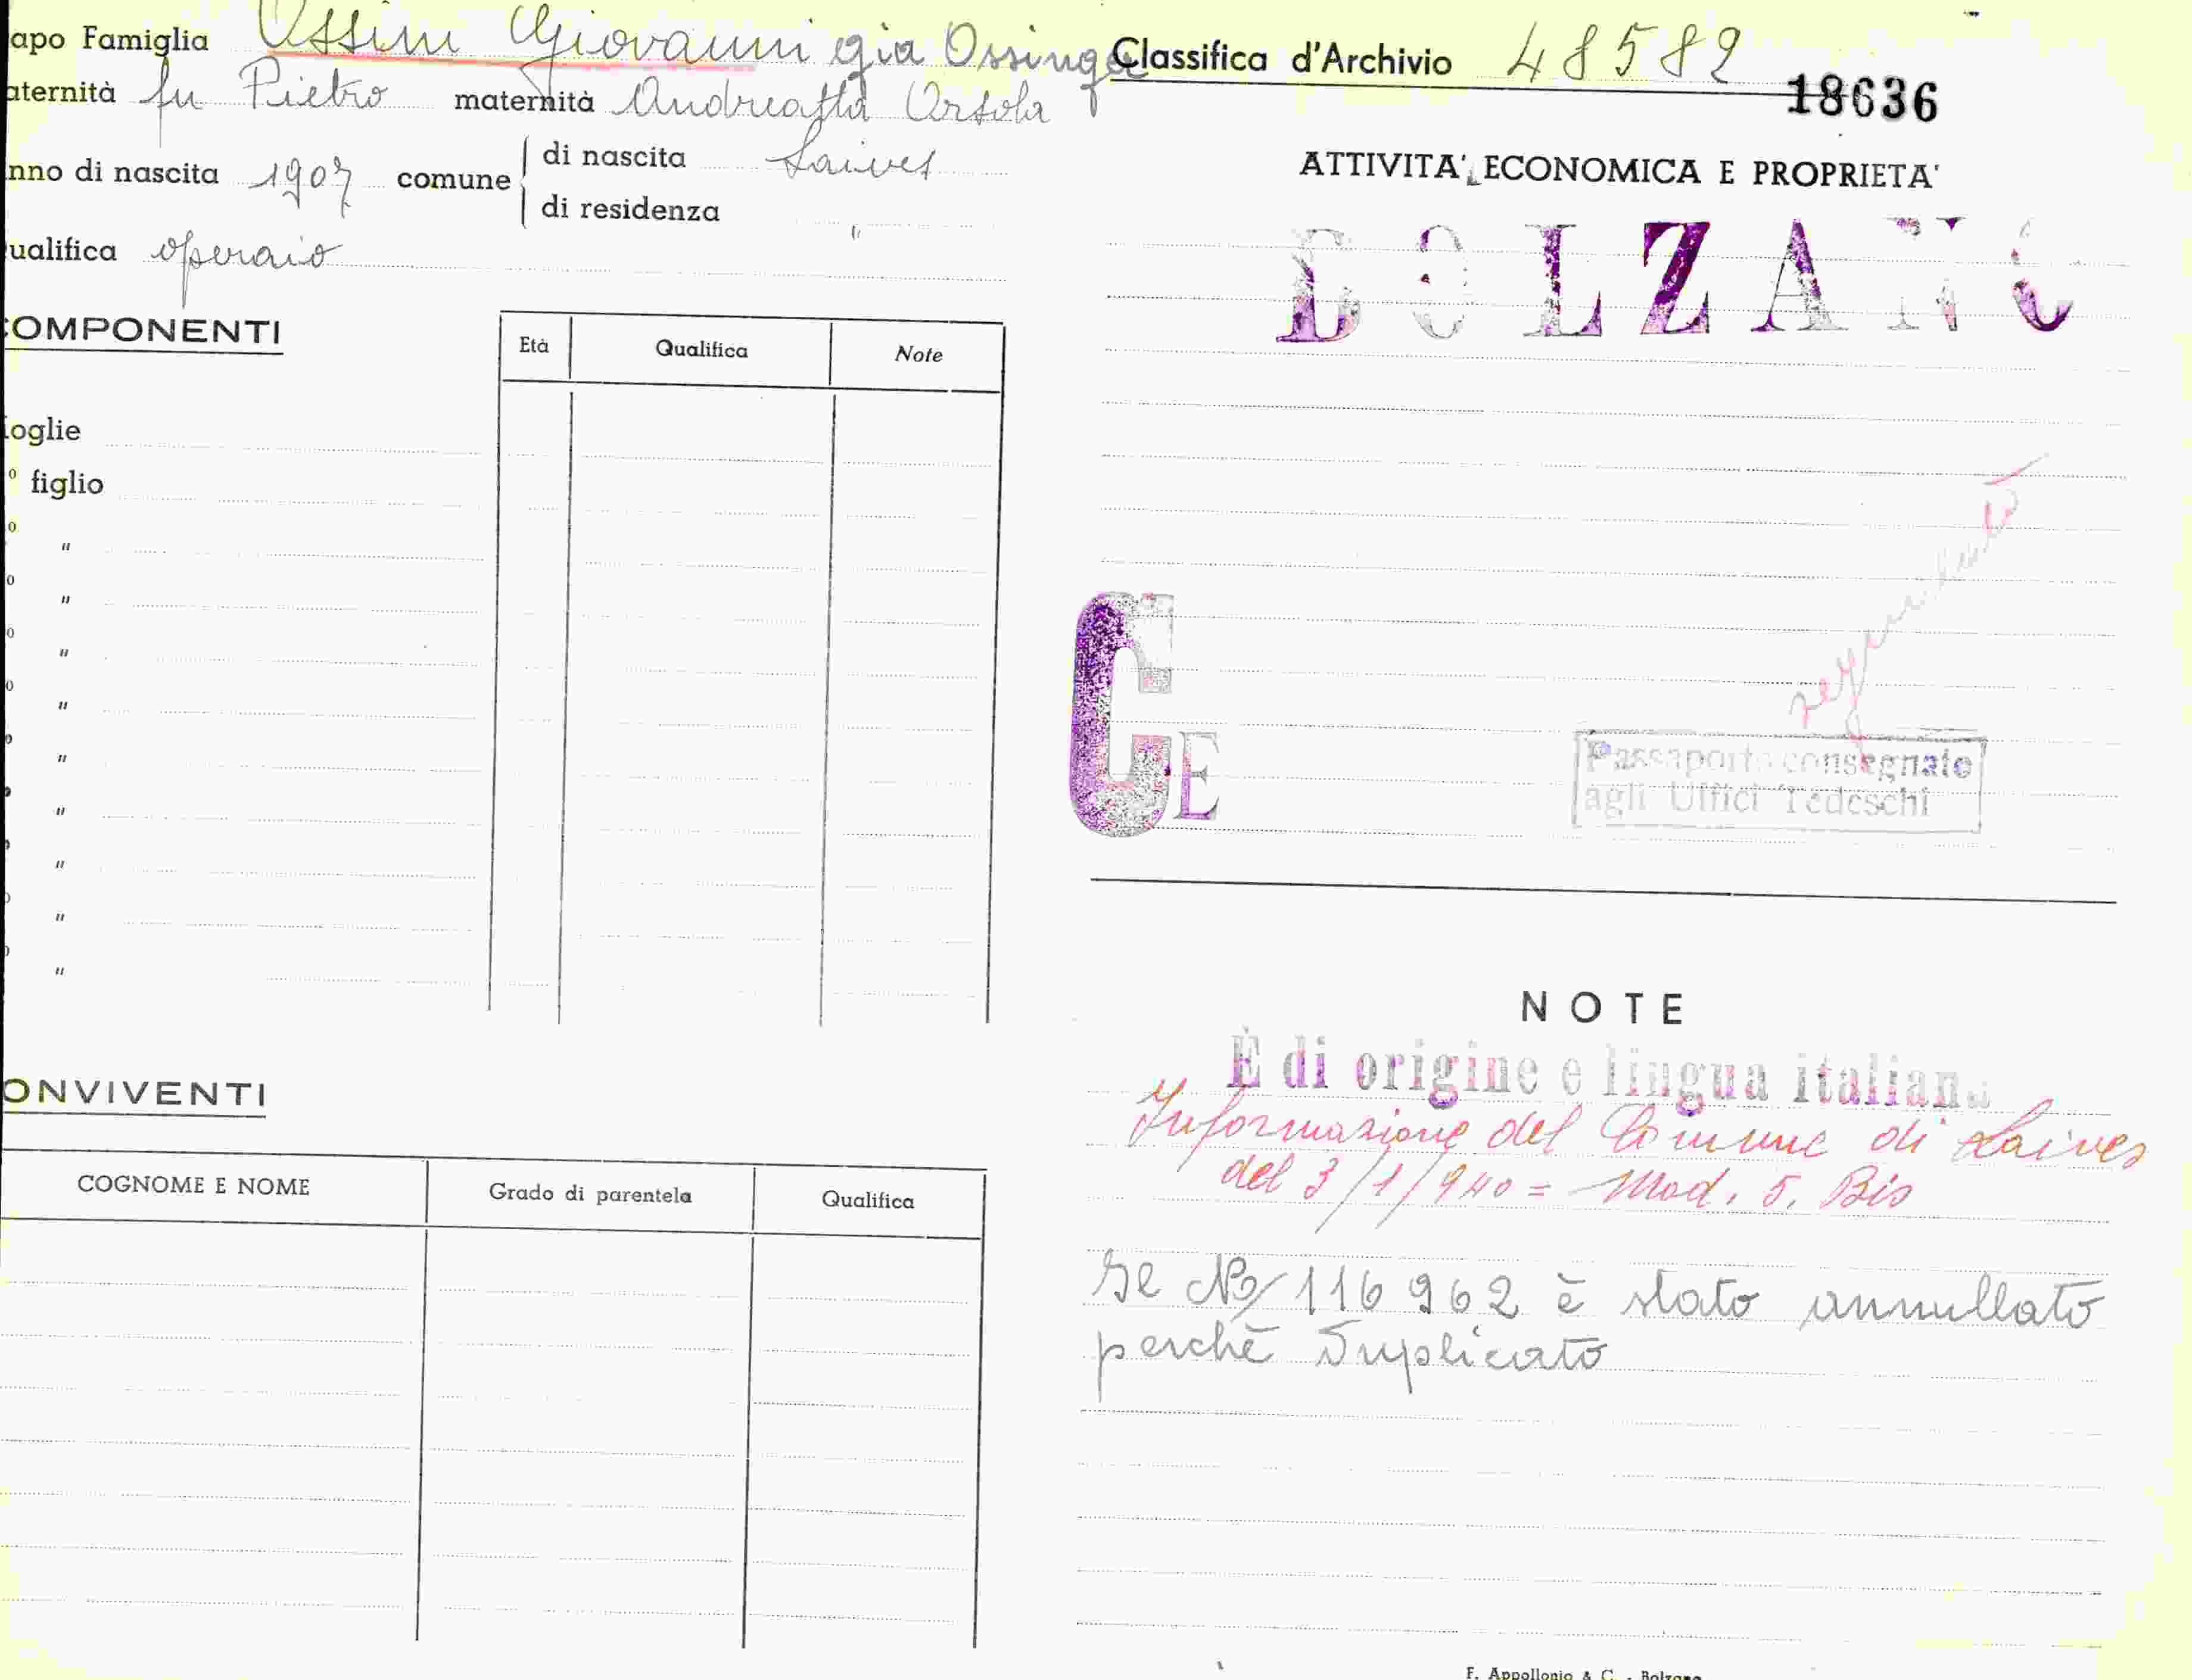 apo Famiglia Ossini Giovanni già Ossinga
aternità fu Pietro maternità Andreatta Orsola
nno di nascita 1907 comune di nascita Laives
di residenza "
ualifica operaio
OMPONENTI
Età Qualifica Note
oglie
o figlio
o "
o "
o "
o "
o "
o "
o "
o "
o "
ONVIVENTI
COGNOME E NOME Grado di parentela Qualifica
Classifica d'Archivio 48582
18636
ATTIVITA' ECONOMICA E PROPRIETA'
BOLZANO
CE
Passaporto consegnato
agli Uffici Tedeschi
NOTE
È di origine e lingua italiana
Informazione del Comune di Laives
del 3/1/940 = Mod. 5. Bis
Il No/116962 è stato annullato
perchè Duplicato
F. Appollonio & C. - Bolzano